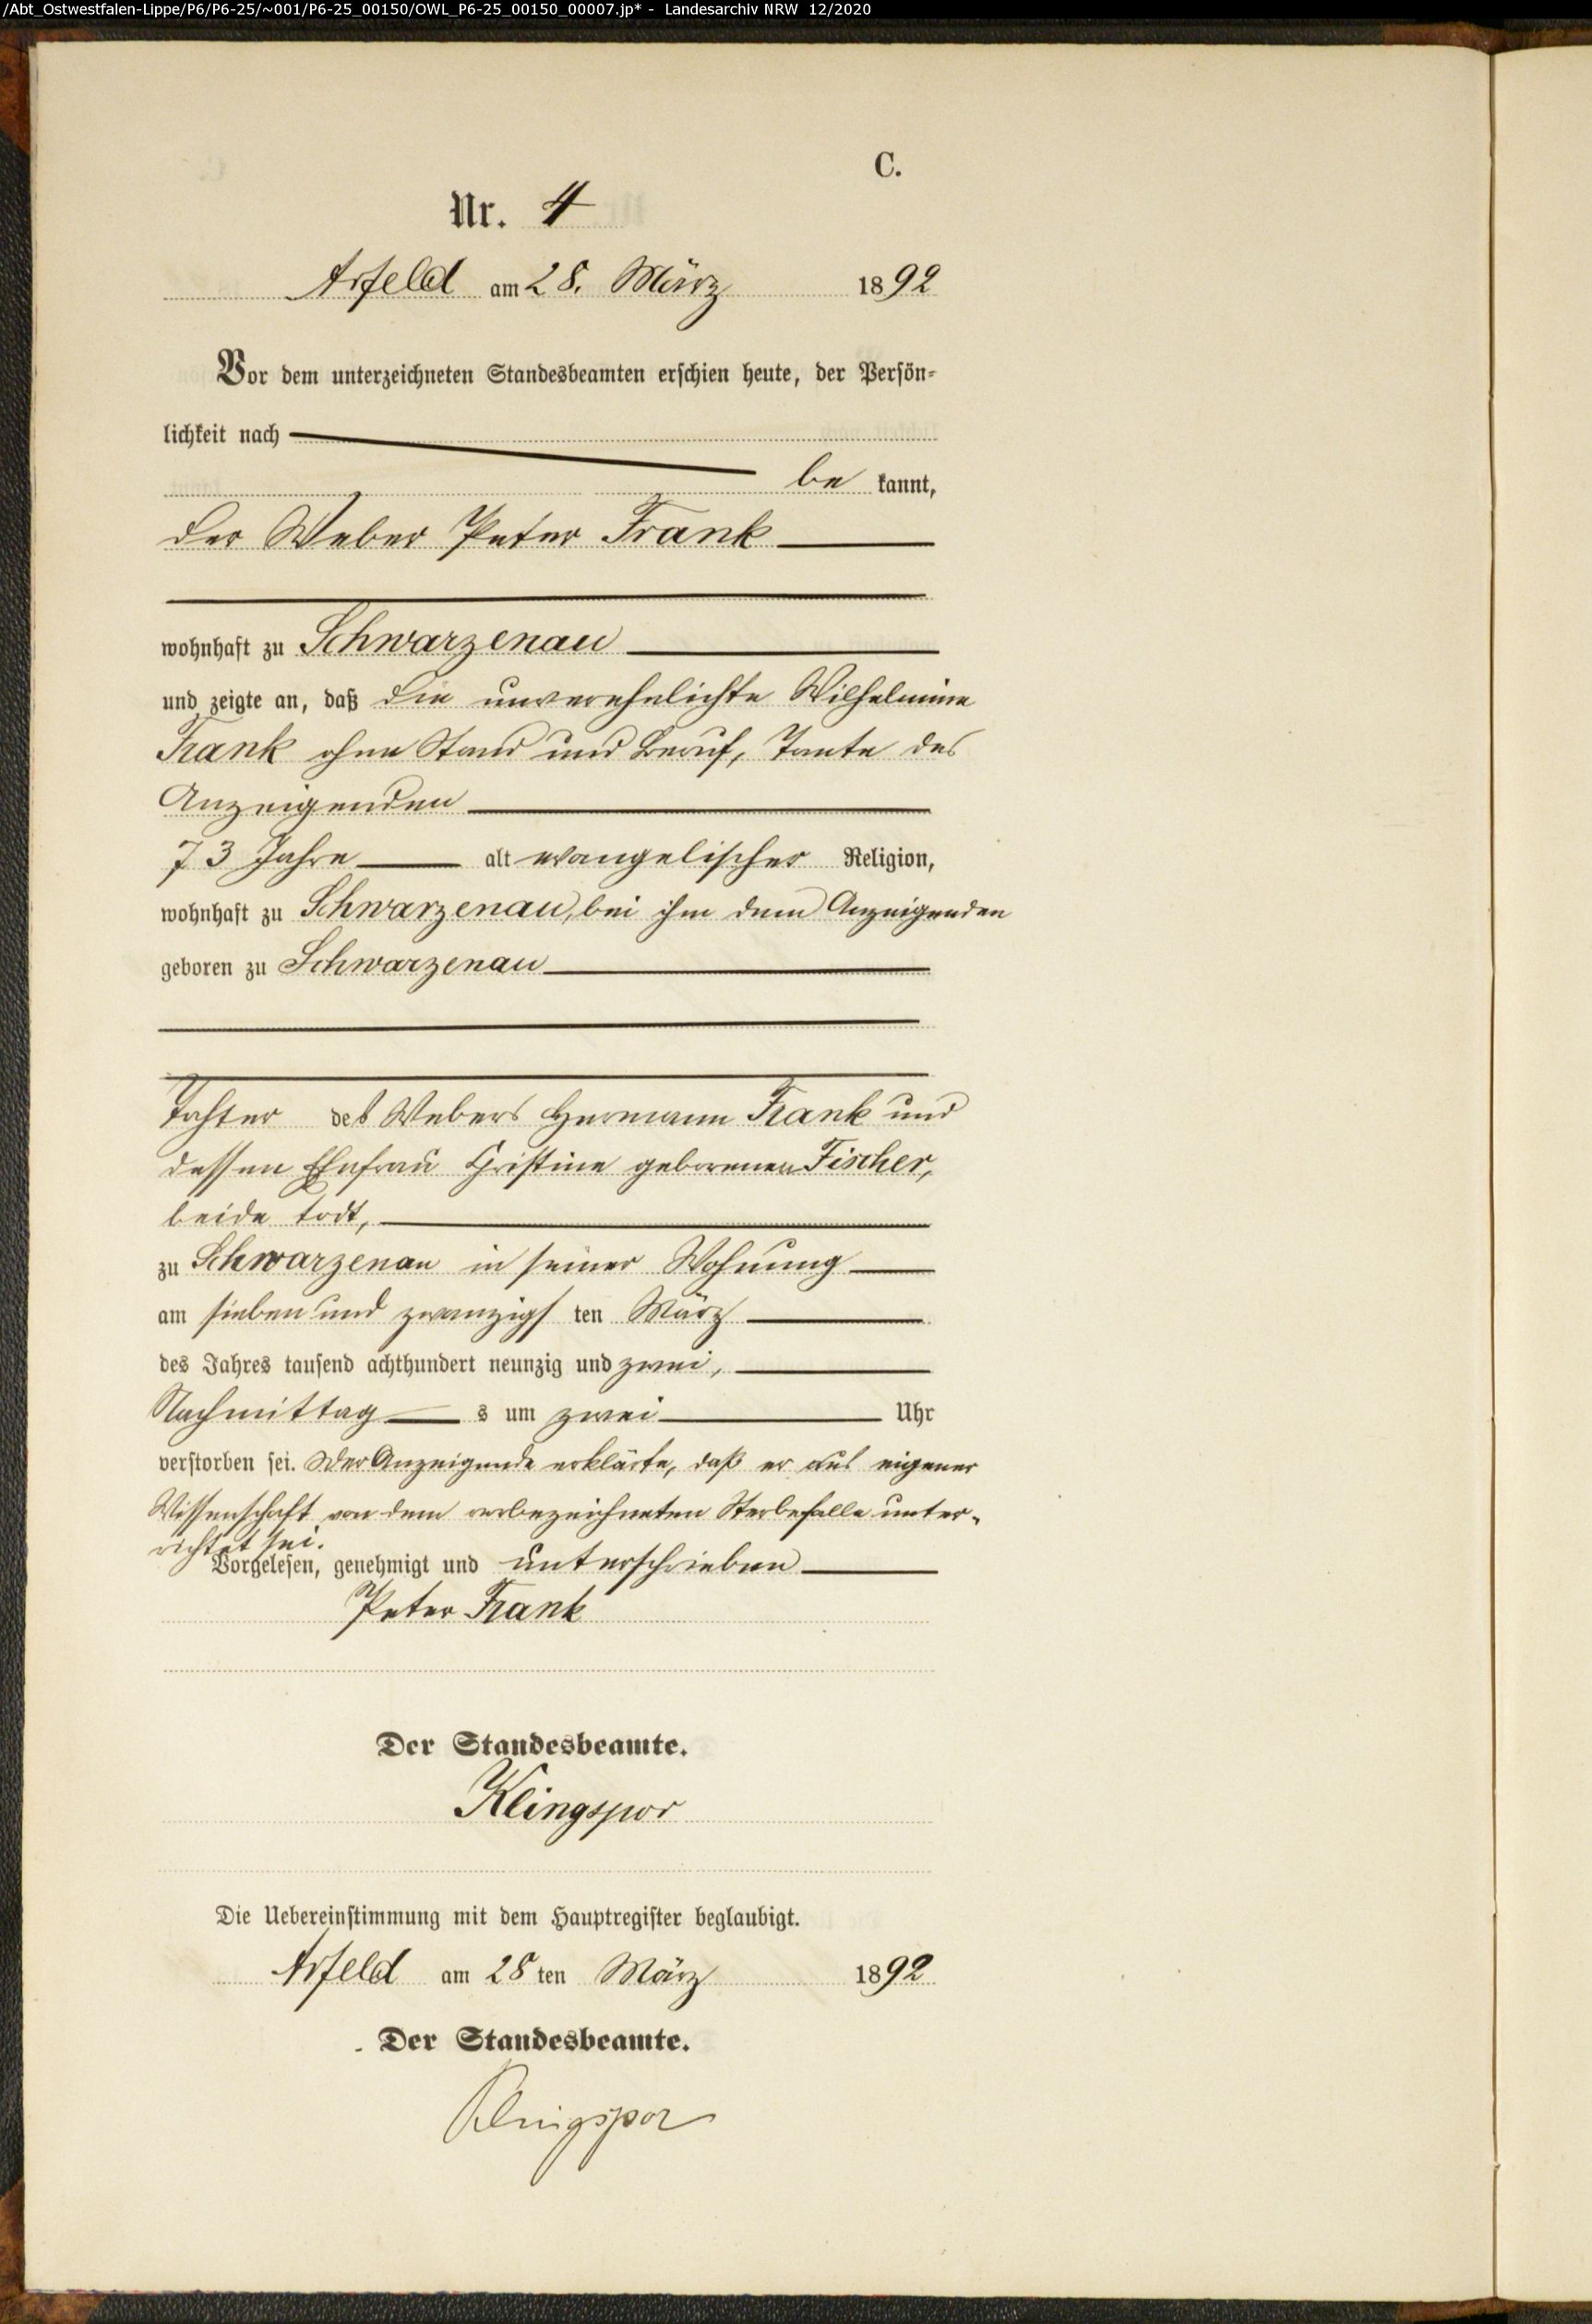 /Abt_Ostwestfalen-Lippe/P6/P6-25/~001/P6-25_00150/OWL_P6-25_00150_00007.jp* - Landesarchiv NRW 12/2020
C.
Nr. 4
Arfeld am 28. März 1892
Vor dem unterzeichneten Standesbeamten erschien heute, der Persön-
lichkeit nach
be kannt,
der Weber Peter Frank
wohnhaft zu Schwarzenau
und zeigte an, daß die unverehelichte Wilhelmine
Frank ohne Stand und Beruf, Tante des
Anzeigenden
73 Jahre alt evangelischer Religion,
wohnhaft zu Schwarzenau, bei ihm dem Anzeigenden
geboren zu Schwarzenau
Tochter des Webers Hermann Frank und
dessen Ehefrau Christine geborenen Fischer,
beide todt,
zu Schwarzenau in seiner Wohnung
am sieben und zwanzigs ten März
des Jahres tausend achthundert neunzig und zwei,
Nachmittag s um zwei Uhr
verstorben sei. Der Anzeigende erklärte, daß er aus eigener
Wissenschaft von dem vorbezeichneten Sterbefalle unter-
richtet sei.
Vorgelesen, genehmigt und unterschrieben
Peter Frank
Der Standesbeamte.
Klingspor
Die Uebereinstimmung mit dem Hauptregister beglaubigt.
Arfeld am 28 ten März 1892
Der Standesbeamte.
Klingspor